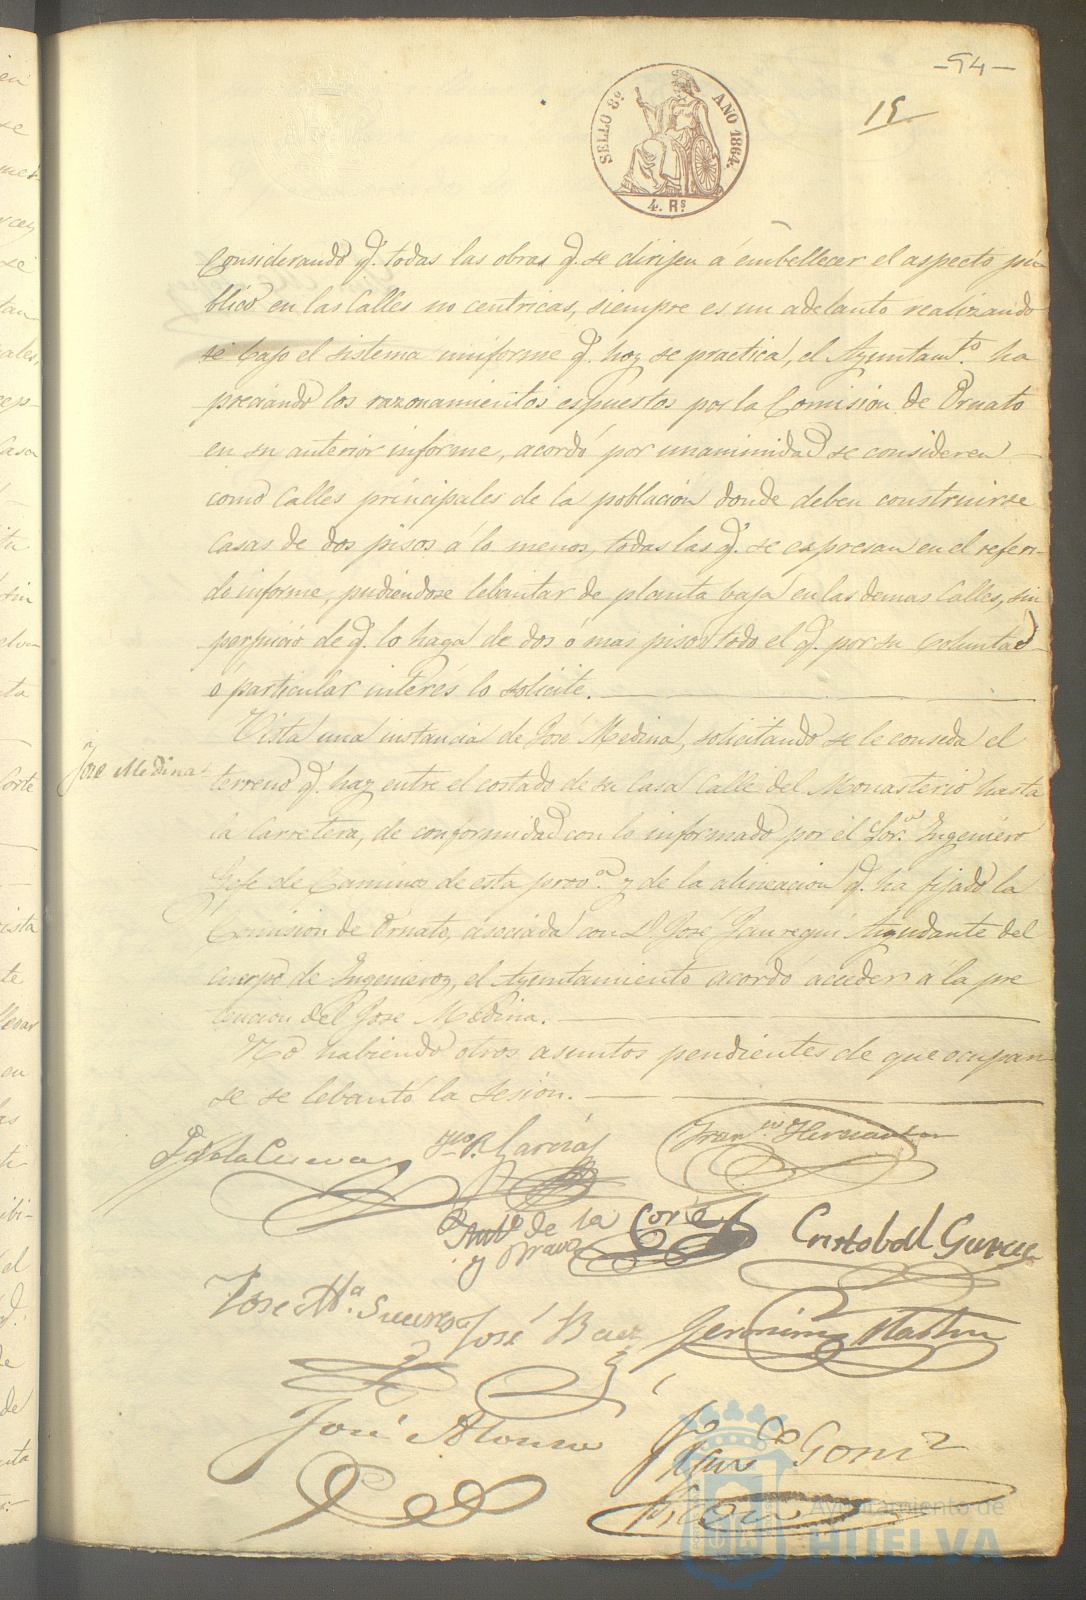 -94-
15
SELLO 8º AÑO 1864.
4. Rˢ
Considerando q.ᵉ todas las obras q.ᵉ se dirijen á embellecer el aspecto pú-
blico en las Calles no centricas, siempre es un adelanto realizando
se bajo el sistema uniforme q.ᵉ hoy se practica, el Ayuntamᵗº. ha
preciando los razonamientos espuestos por la Comisión de Ornato
en su anterior informe, acordó por unanimidad se consideren
como Calles principales de la población donde deben construirse
Casas de dos pisos á lo menos, todas las q.ᵉ se espresan en el referi-
do informe, pudiendose lebantar de planta baja en las demas Calles, sin
perjuicio de q.ᵉ lo haga de dos ó mas pisos todo el q.ᵉ por su voluntad
ó particular interés lo solicite.
Vista una instancia de José Medina, solicitando se le conseda el
José Medina
terreno q.ᵉ hay entre el costado de su Casa Calle del Monasterio hasta
la Carretera, de conformidad con lo informado por el Sor. Ingeniero
Gefe de Caminos de esta provᵃ. y de la alineacion q.ᵉ ha fijado la
Comision de Ornato, asociada con D. José Jauregui Ayudante del
cuerpo de Ingenieros, el Ayuntamiento acordó acceder á la pre
tencion del José Medina.
No habiendo otros asuntos pendientes de que ocupar
se se lebantó la sesión.
de la Cueva
García
Franᶜᵒ Hernandez
Antº de la Corte
y Bravo
Cristobal Garcia
Jose Mª. Suero
José Baez
Jeronimo Martin
José Alonso
Franᶜᵒ Gomᶻ
Ayuntamiento de
HUELVA